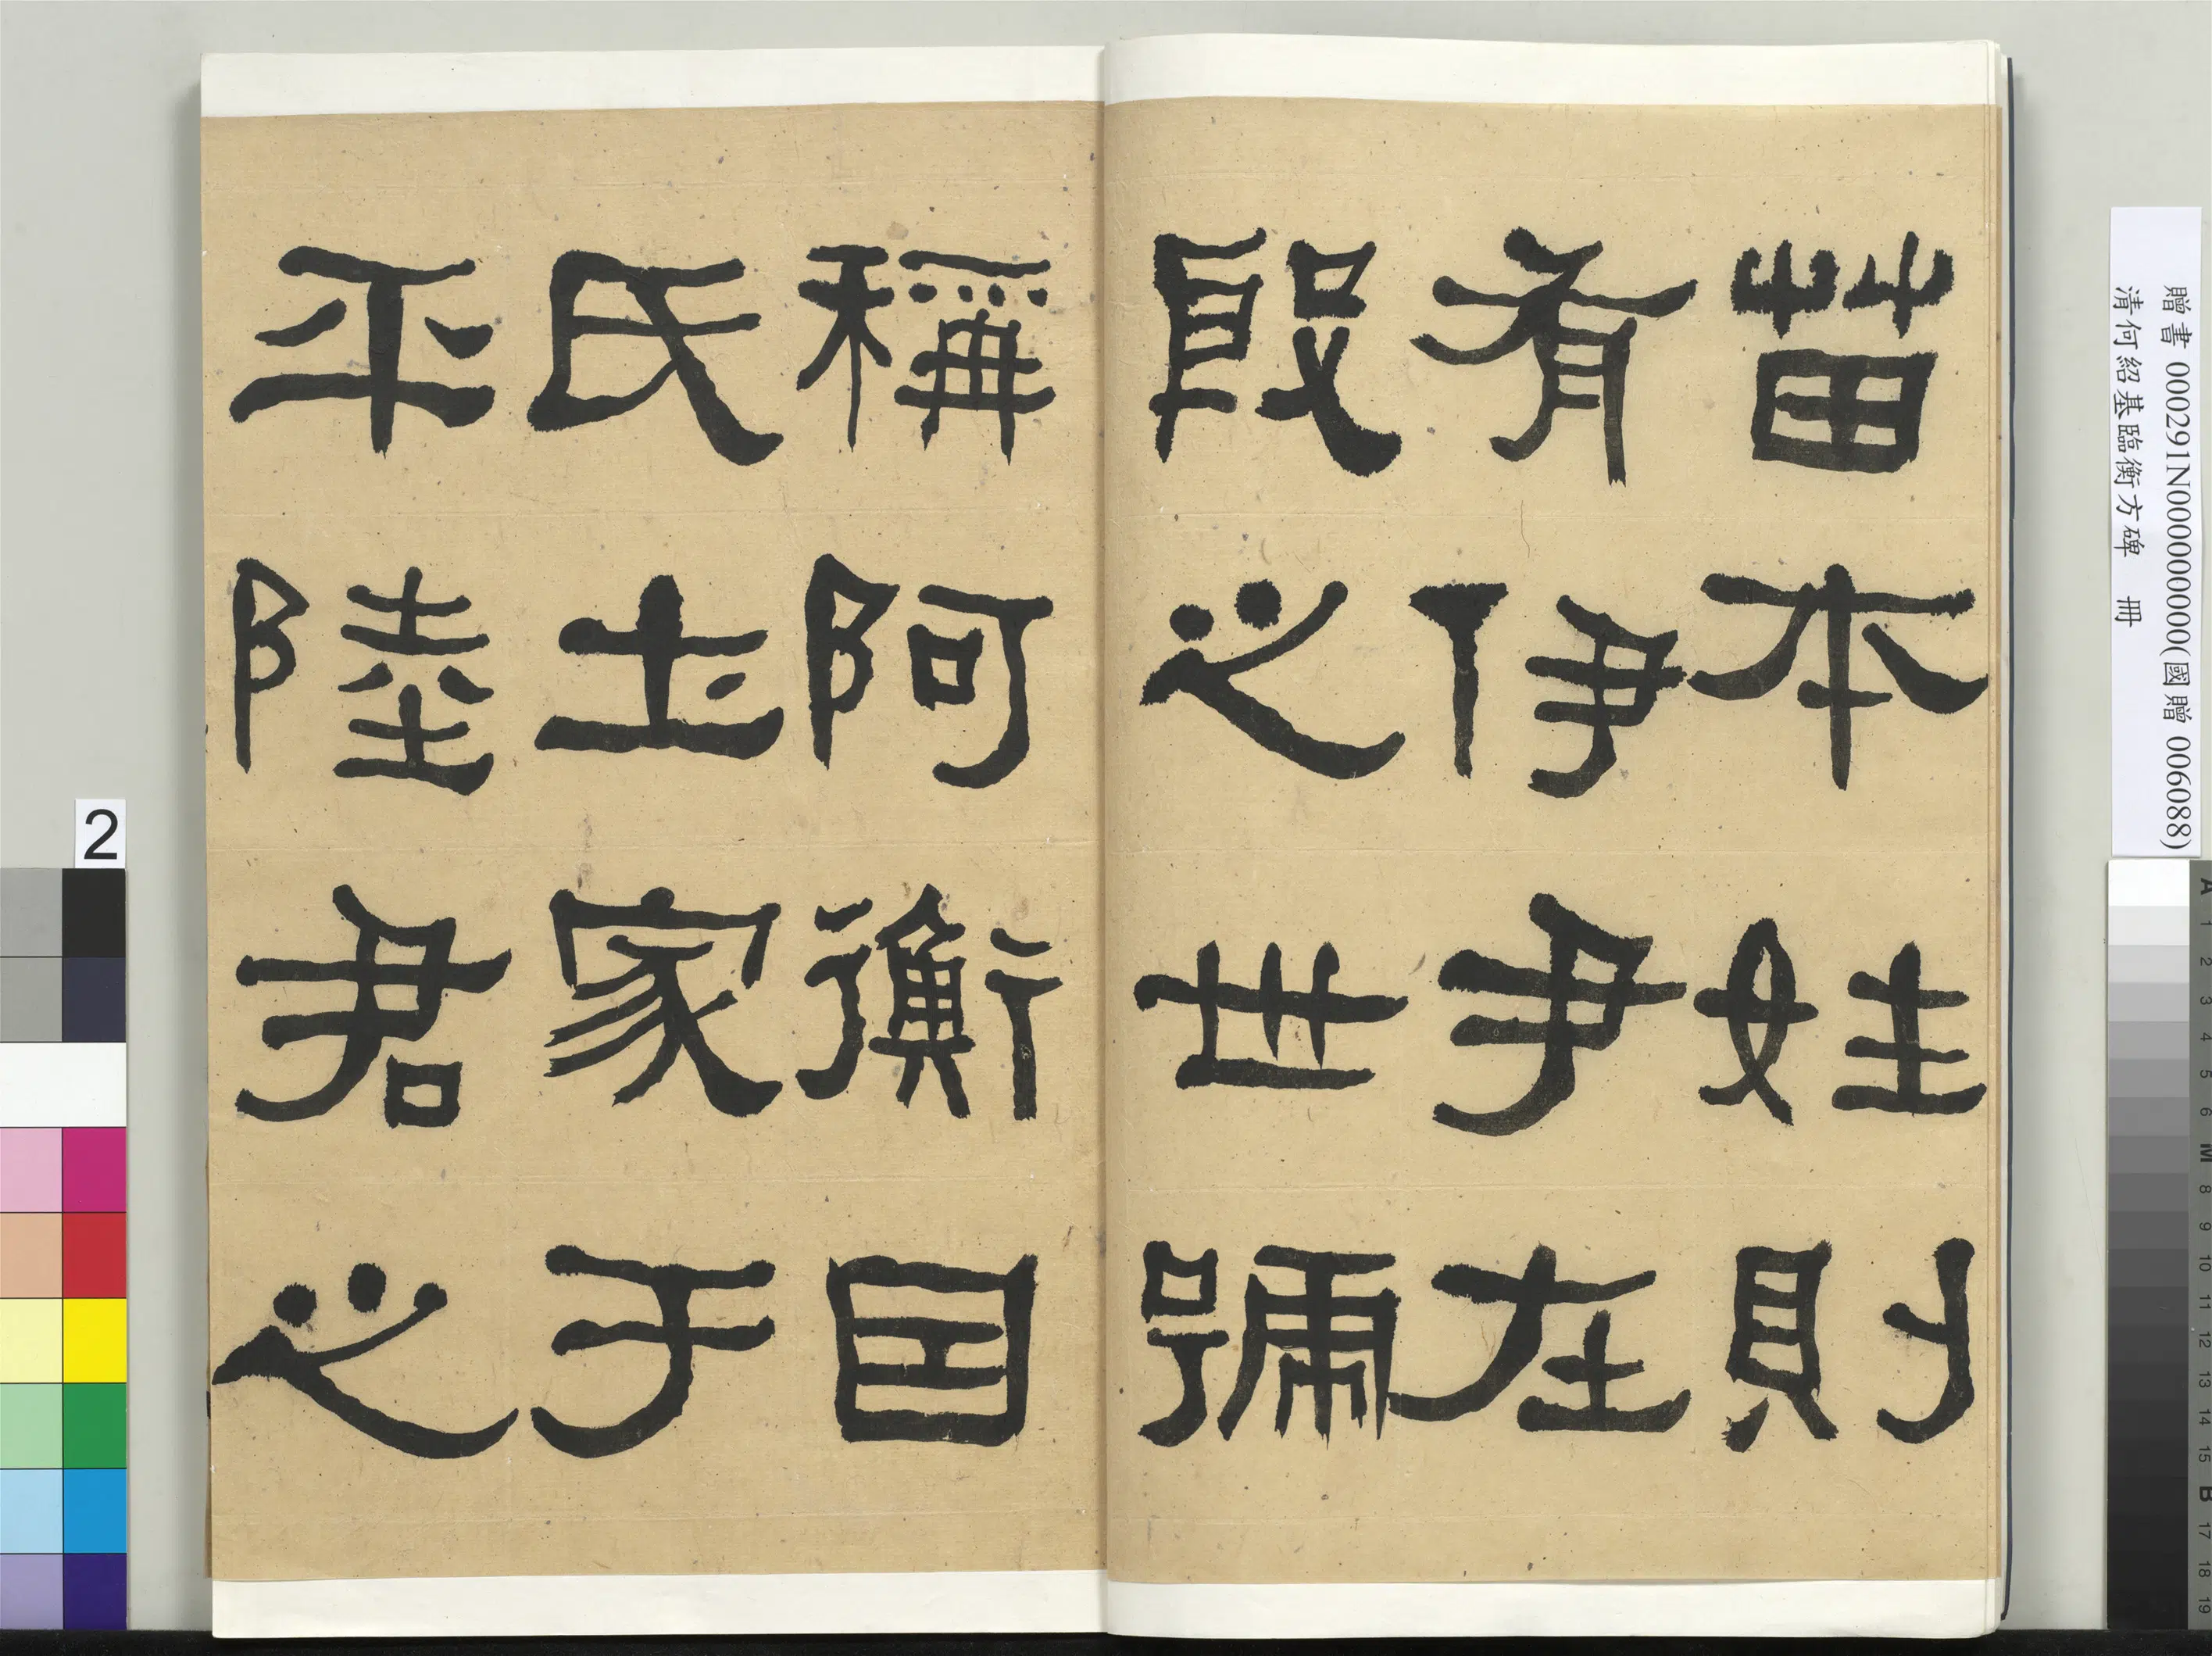 苗本姓則
有伊尹在
殷之世號
稱阿衡因
氏圡家于
平陸君之
贈書 000291N000000000(國贈 006088)
清何紹基臨衡方碑 冊
2
A 1 2 3 4 5 6 M 8 9 10 11 12 13 14 15 B 17 18 19